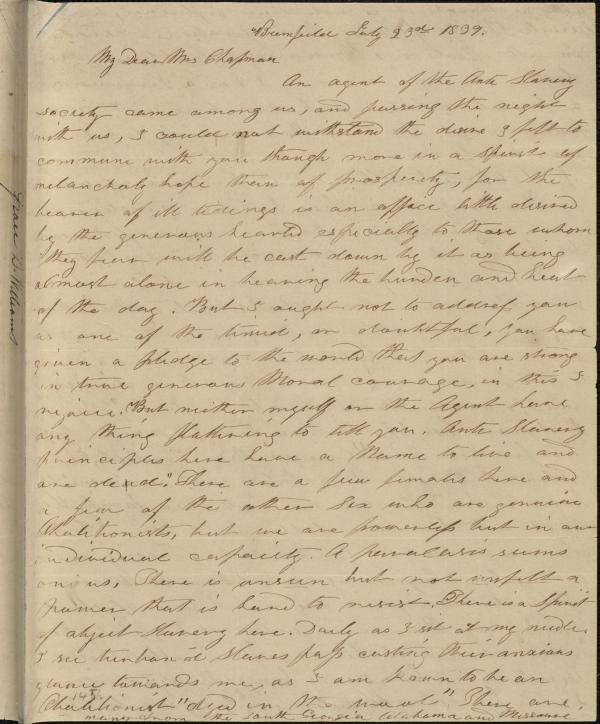 Brimfield July 23rd 1839.
My Dear Mrs Chapman
An agent of the Anti Slavery
society came among us, and passing the night
with us, I could not withstand the desire I felt to
commune with you though more in a spirit of
melancholy hope than of prosperity, for the
bearer of ill tidings is an office little desired
by the generous hearted especially to those whom
they fear will be cast down by it as being
almost alone in bearing the burden and heat
of the day. But I ought not to address you
as one of the timid, or doubtful, you have
given a pledge to the world that you are strong
in true generous Moral courage, in this I
rejoice. But neither myself or the Agent have
any thing flattering to tell you. Anti Slavery
Principles here have a Name to live and
are dead". There are a few females here and
a few of the other sex who are genuine
Abolitionists, but we are powerless but in our
individual capacity. A paralasis seems
on us, There is unseen but not unfelt a
power that is hard to resist. There is a Spirit
of abject Slavery here. Daily as I sit at my needle
I see turban'd Slaves pass casting their anxious
glance towards me, as I am known to be an
Abolitionist "dyed in the wool". There are,
many from the South Georgia Alabama and Missouri
145
Grace D. Williams